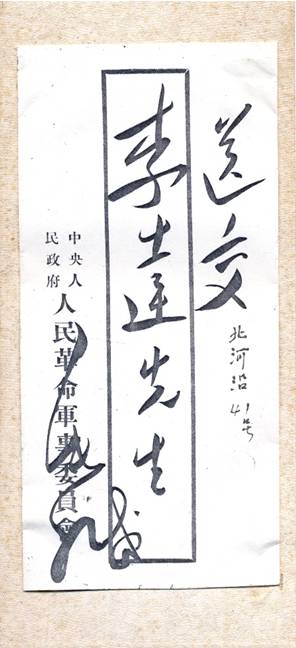 送交
北河沿41号
李士達先生
中央人
民政府
人民革命軍事委員會